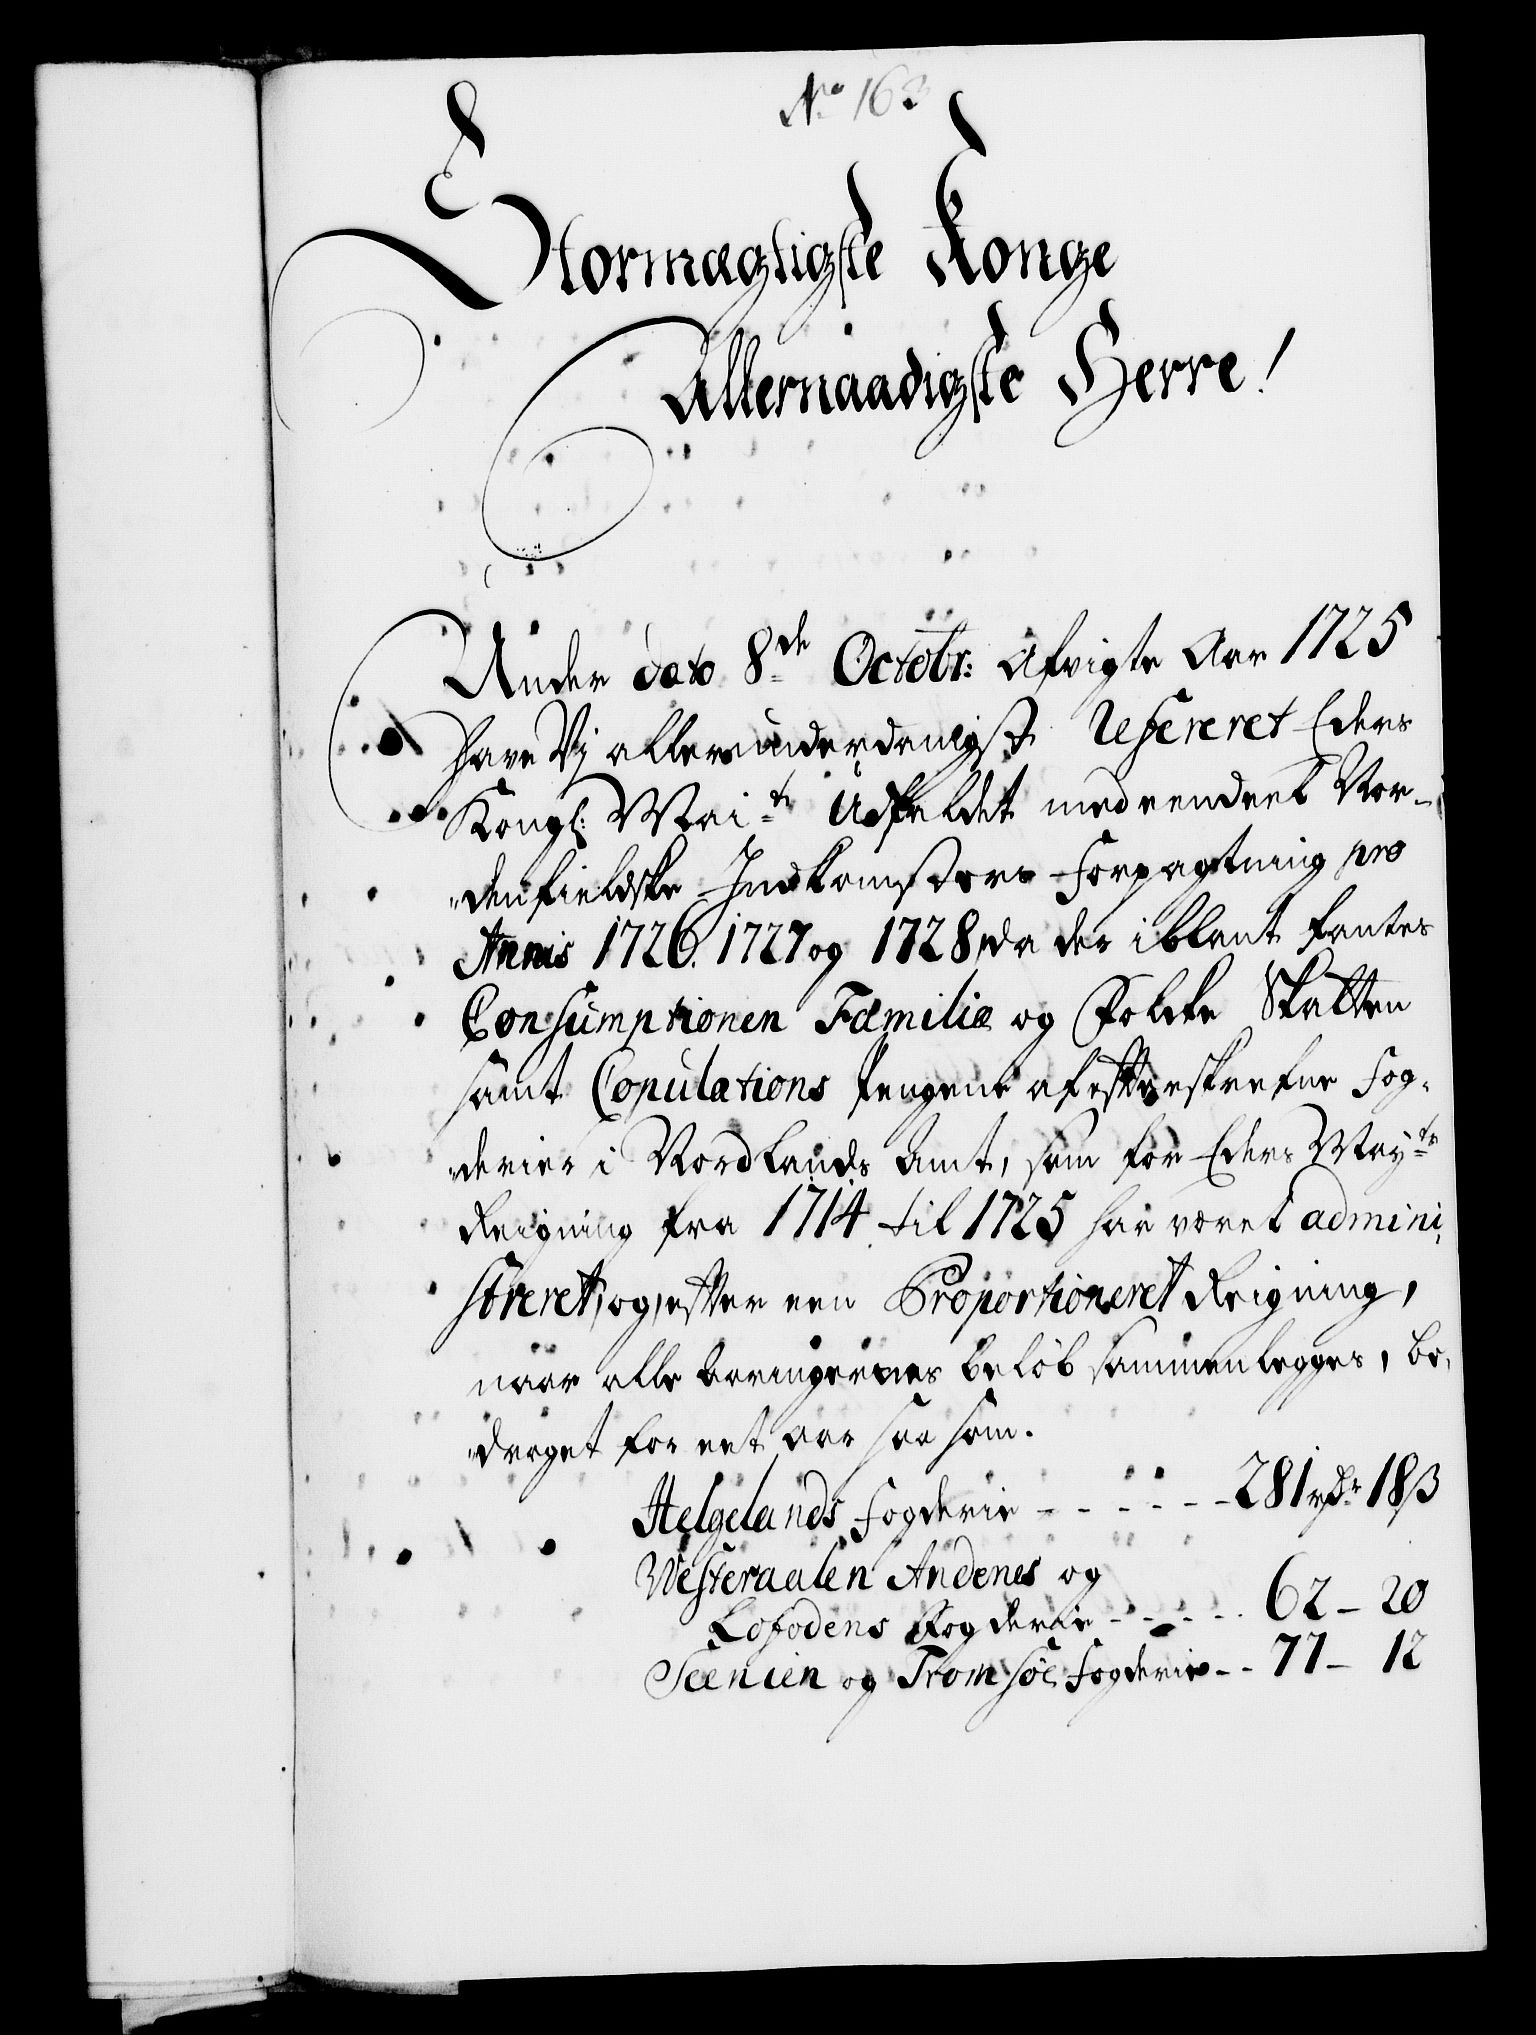 No 163
Stormægtigste Konge
Allernaadigste Herre!
Under dato 8de Octobr: afvigte Aar 1725
have Vj allerunderdanigst Refereret Eders
Kongl: Mai:ts Udfaldet med eendeel Nor-
denfieldske Indkomsters Forpagtning pro
Annis 1726. 1727 og 1728, da der iblant fantes
Consumptionen Familie og Folcke Skatten
samt Copulations Pengene af efterskrefne Fog-
derier i Nordlands Amt, som for Eders May:ts
Reigning fra 1714 til 1725 har været admini-
streret, og, efter een Proportioneret Reigning,
naar alle Aaringernes beløb sammenlegges, be-
draget for eet Aar saa som.
Helgelands Fogderie - - - - - - 281 rdr 18 ß
Westeraalen Andenes og
Lofodens Fogderie - - - - - 62 - 20
Seenien og Tromsøe Fogderie - - 77 - 12